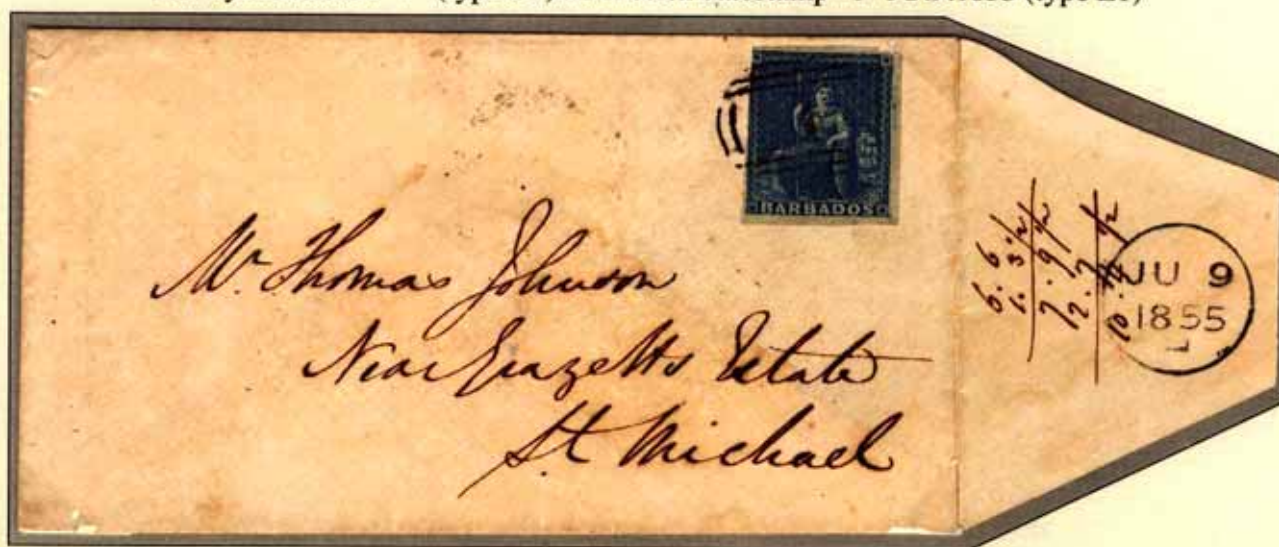 BARBADOS
Mr. Thomas Johnson
Near Grazetts Estate
St Michael
6. 6
1. 3 1/2
7. 9 1/2
JU 9
1855
L